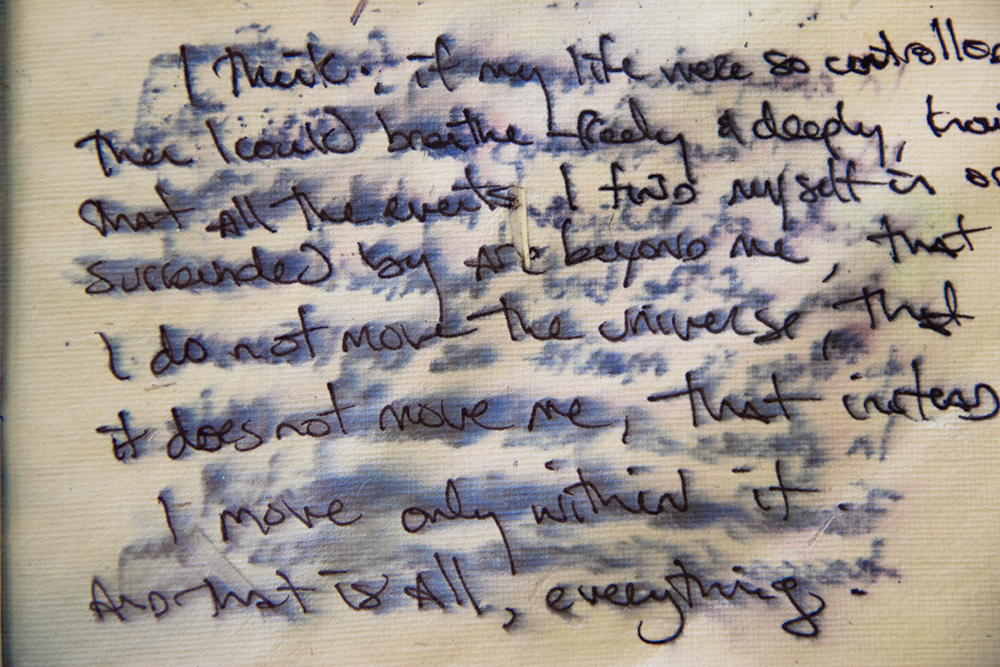 I think: if my life were so controlled
then I could breathe freely & deeply,
that all the events I find myself in or
surrounded by are beyond me, that
I do not move the universe, that
it does not move me, that instead
I move only within it.
And that is all, everything.